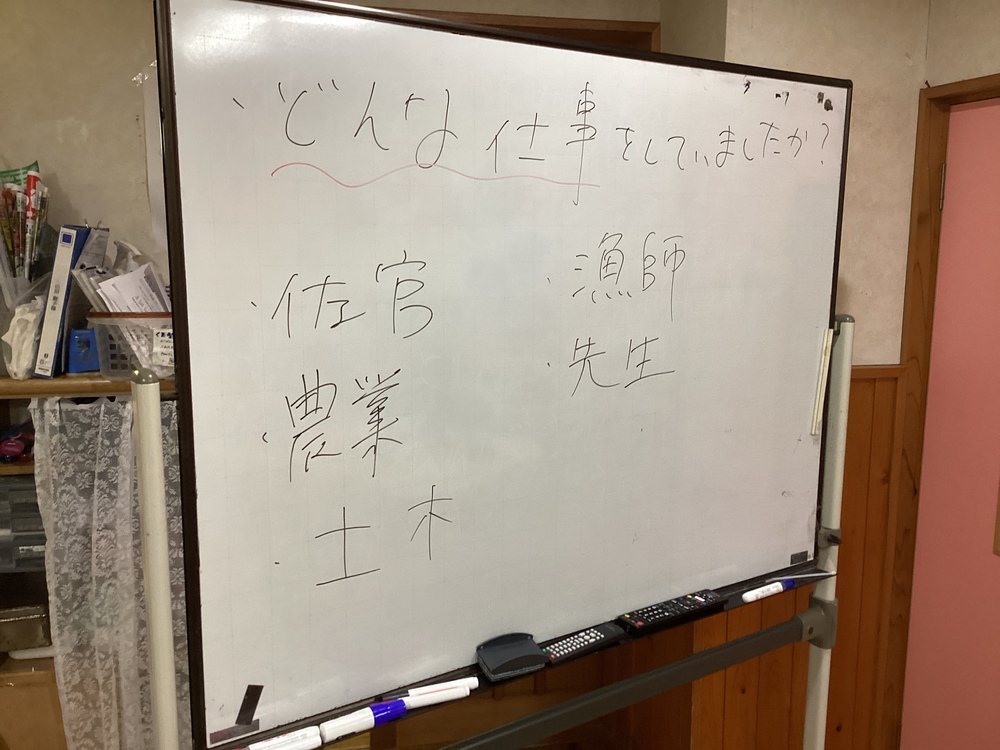 、どんな仕事をしていましたか?
・佐官
・農業
・土木
・漁師
・先生